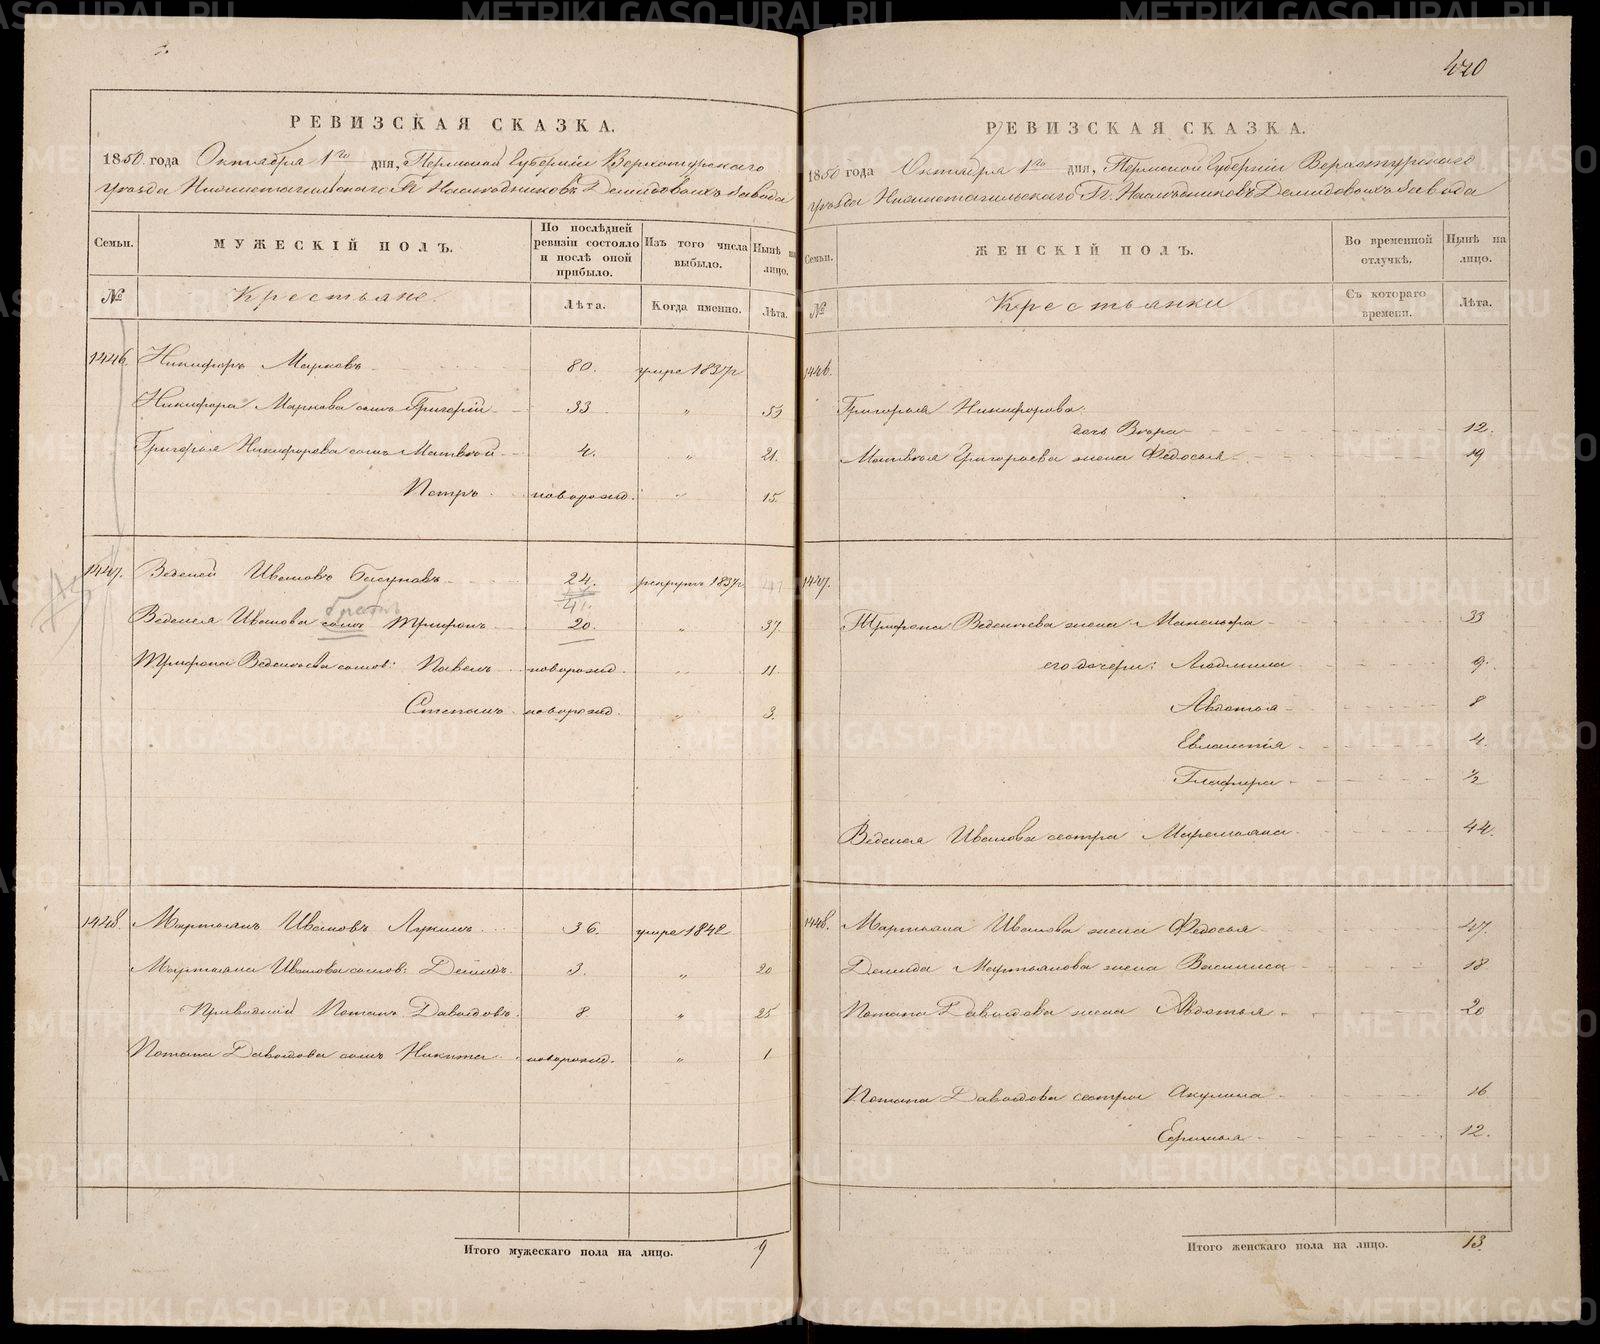 420
РЕВИЗСКАЯ СКАЗКА.
1850 года Октября 1го дня, Пермской Губернiи Верхотурскаго
уѣзда Нижнетагильскаго Гг. Наслѣдниковъ Демидовыхъ завода
Семьи. МУЖЕСКIЙ ПОЛЪ. По послѣдней ревизiи состояло и послѣ оной прибыло. Изъ того числа выбыло. Нынѣ на лицо.
№ Крестьяне. Лѣта. Когда именно. Лѣта.
1446. Никифоръ Марковъ 80. умре 1837г
Никифора Маркова сынъ Григорiй 33 " 53
Григорья Никифорова сынъ Матвѣй 4. " 21.
Петръ новорожд. " 15.
1447. Веденей Ивановъ Басуновъ 24. рекрутъ 1837г 41
41.
братъ
Веденея Иванова сынъ Трифонъ 20. " 37.
Трифона Веденѣева сынов: Павелъ новорожд. " 11
Степанъ новорожд. " 3.
1448. Мартьянъ Ивановъ Лукинъ 36. умре 1842
Мартьяна Иванова сынов: Демидъ 3. " 20
Приводной Потапъ Давыдовъ 8 " 25
Потапа Давыдова сынъ Никита новорожд. " 1
Итого мужескаго пола на лицо. 9
РЕВИЗСКАЯ СКАЗКА.
1850 года Октября 1го дня, Пермской Губернiи Верхотурскаго
уѣзда Нижнетагильскаго Гг. Наслѣдниковъ Демидовыхъ завода
Семьи. ЖЕНСКIЙ ПОЛЪ. Во временной отлучкѣ. Нынѣ на лицо.
№ Крестьянки Съ котораго времени. Лѣта.
1446.
Григорья Никифорова
дочь Вѣра 12.
Матвѣя Григорьева жена Федосья 19
1447.
Трифона Веденѣева жена Манефа 33
его дочери: Людмила 9.
Авдотья 8
Евлампiя 4.
Глафира 1/2
Веденея Иванова сестра Маремьяна 44.
1448. Мартьяна Иванова жена Федосья 47.
Демида Мартьянова жена Василиса 18
Потапа Давыдова жена Авдотья 20
Потапа Давыдова сестра Акулина 16
12.
Итого женскаго пола на лицо. 13.
METRIKI.GASO-URAL.RU